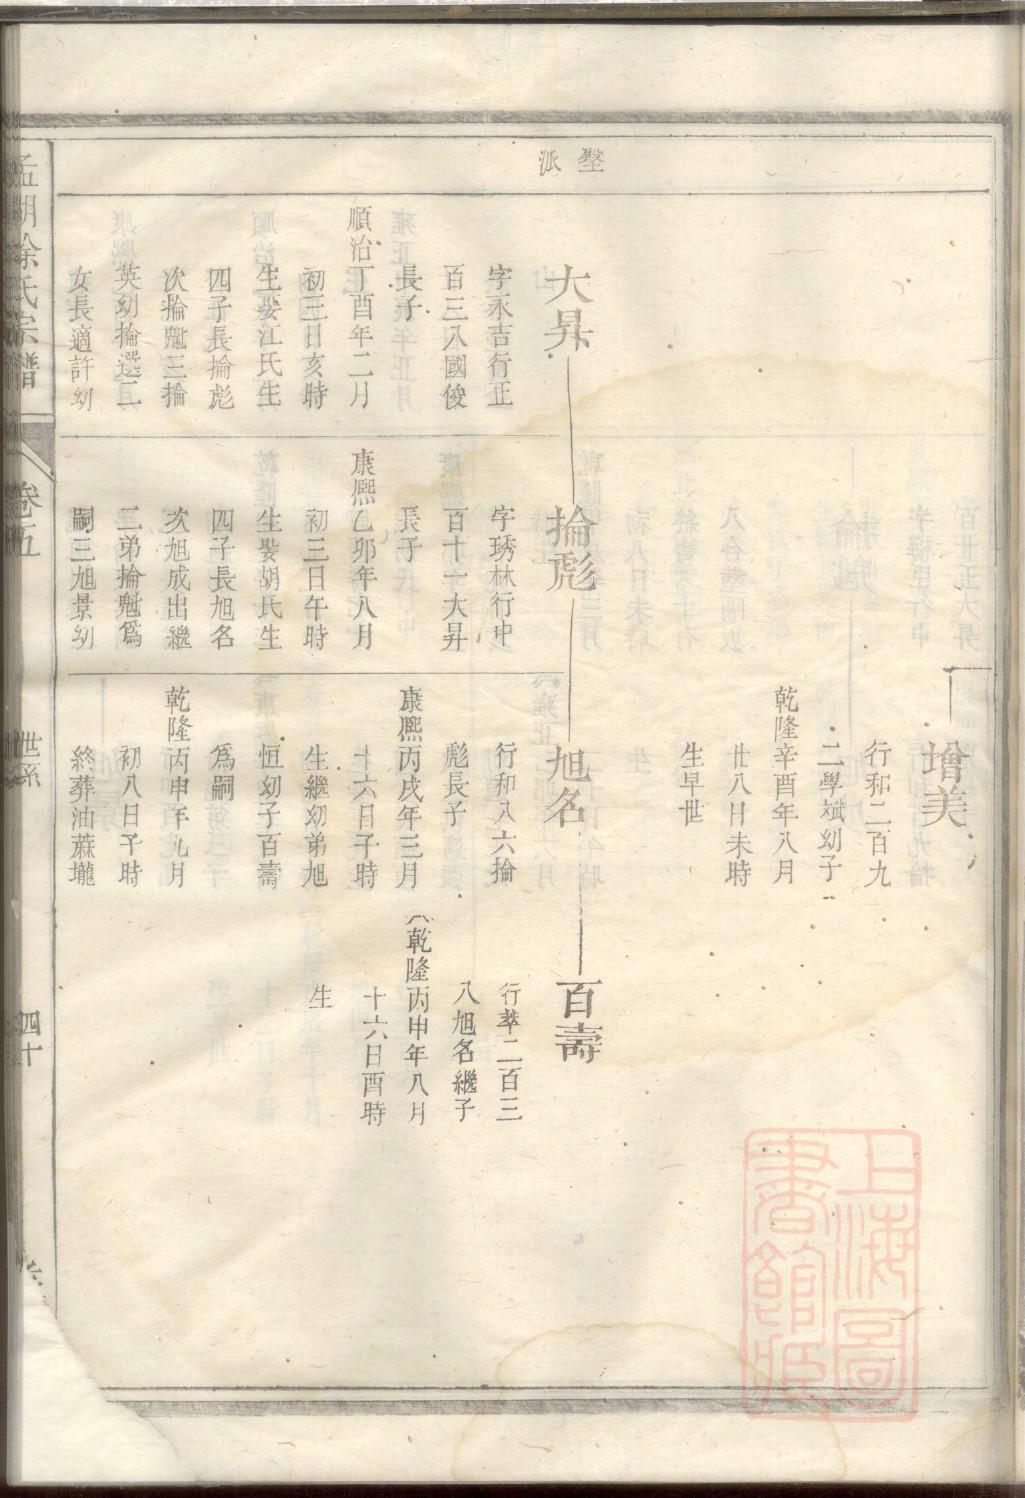 派
增美
行和二百九
二學斌幼子
乾隆辛酉年八月
廿八日未時
生早世
大昇
字永吉行正
百三八國俊
長子
順治丁酉年二月
初三日亥時
生娶江氏生
四子長掄彪
次掄魁三掄
英幼掄選二
女長適許幼
掄彪
字琇林行中
百十一大昇
長子
康熙乙卯年八月
初三日午時
生娶胡氏生
四子長旭名
次旭成出繼
三弟掄魁爲
嗣三旭景幼
旭名
行和八六掄
彪長子
康熙丙戌年三月
十六日子時
生繼幼弟旭
恒幼子百壽
爲嗣
乾隆丙申年九月
初八日予時
終葬油蔴壠
百壽
行萃二百三
八旭名繼子
乾隆丙申年八月
十六日酉時
生
湖徐氏宗譜
卷五
世系
四十
上海圖
書館藏